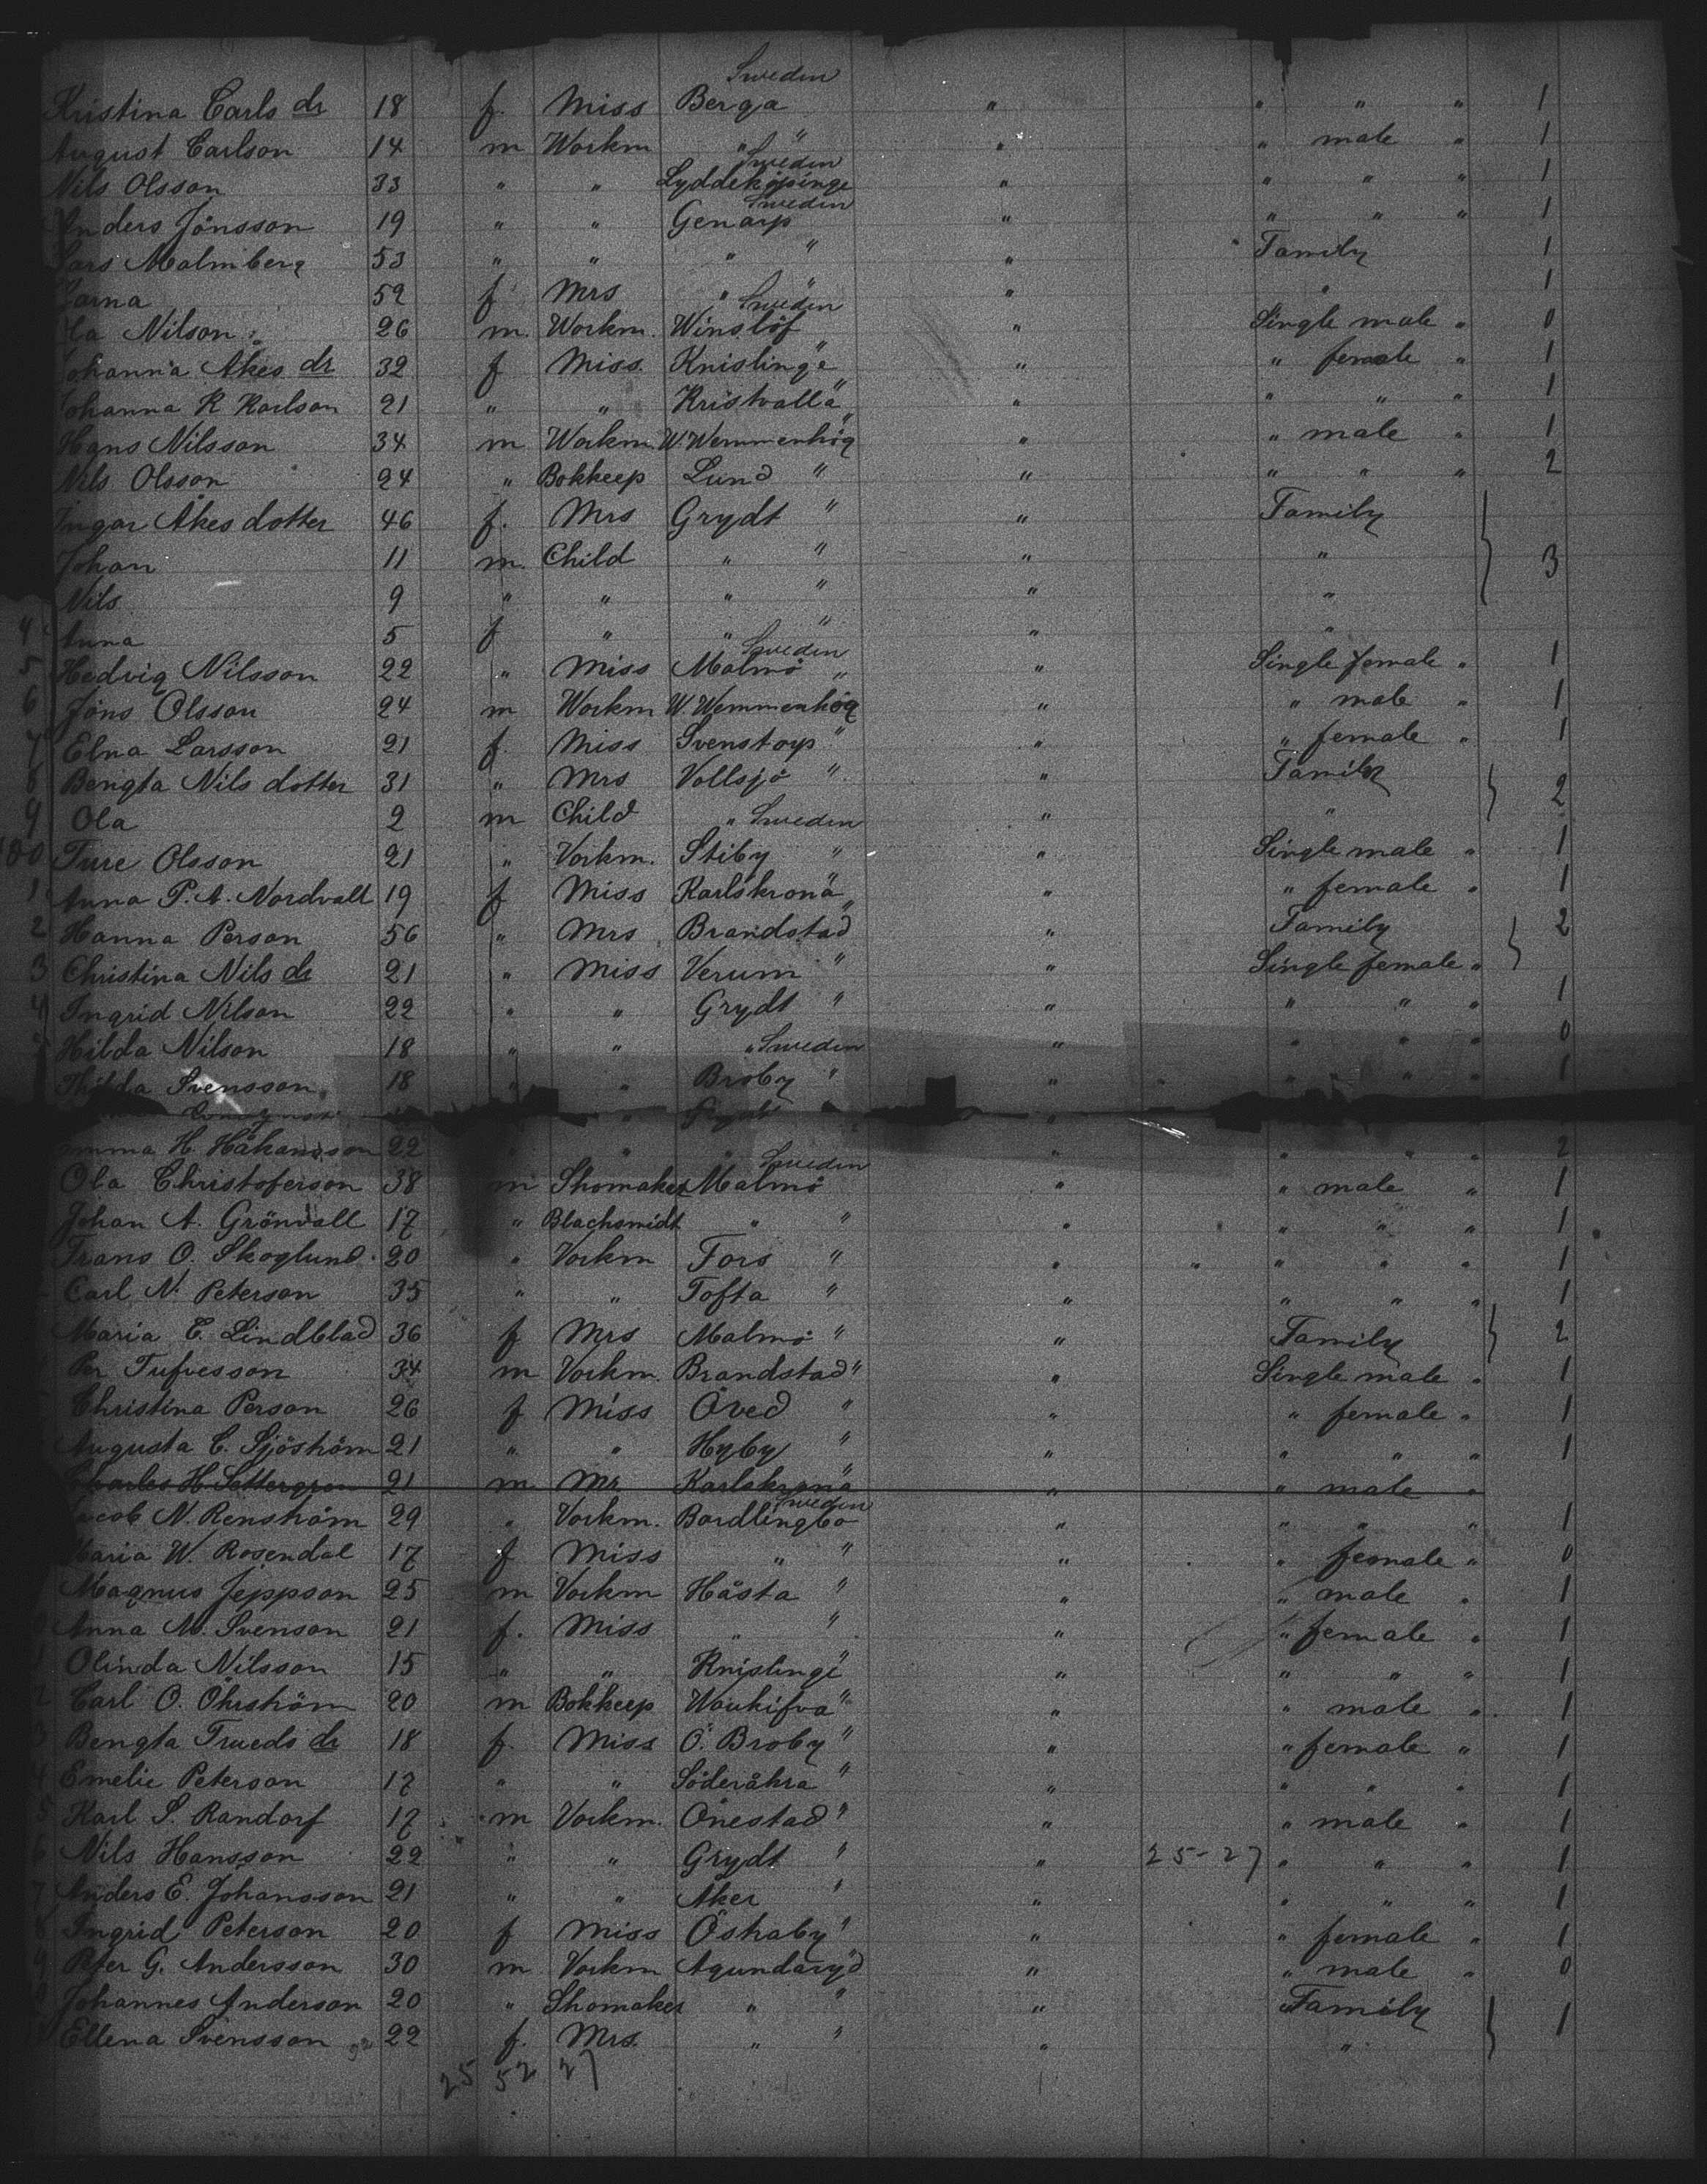 Sweden
Kristina Carls dr 18 f. Miss Berga " " " " 1
August Carlson 14 m Workm " " " " male " 1
Sweden
Nils Olsson 33 " " Lyddeköpinge " " " " 1
Sweden
Anders Jönsson 19 " " Genarp " " " " 1
Lars Malmberg 53 " " " " " Family 1
59 f Mrs " " " " 1
Sweden
Ola Nilson 26 m. Workm. Winslöf " Single male " 0
Johanna Åkes dr 32 f Miss. Knislinge " " " female " 1
Johanna K Karlson 21 " " Kristvalla " " " " " 1
Hans Nilsson 34 m Workm. W. Wemmenhög " " " male " 1
Nils Olsson 24 " Bokkeep Lund " " " " " 2
Ingar Åkes dotter 46 f. Mrs Grydt " " Family
Johan 11 m. Child " " " " 3
Nils 9 " " " " " "
4 Anna 5 f " " " " "
Sweden
5 Hedvig Nilsson 22 " Miss Malmö " " Single female " 1
6 Jöns Olsson 24 m Workm W. Wemmenhög " " male " 1
7 Elna Larsson 21 f. Miss Svenstorp " " " female " 1
8 Bengta Nils dotter 31 " Mrs Vollsjö " " Family 2
9 Ola 2 m Child " Sweden " "
100 Ture Olsson 21 " Vorkm. Stiby " " Single male " 1
1 Anna P. A. Nordvall 19 f Miss Karlskrona " " " female " 1
2 Hanna Person 56 " Mrs Brandstad " " Family 2
3 Christina Nils dr 21 " Miss Verum " " Single female "
4 Ingrid Nilson 22 " " Grydt " " " " " 1
Hilda Nilson 18 " " " Sweden " " " " 0
Thilda Svensson 18 " " Broby " " " " " 1
Emma H. Håkansson 22 " " " " " " " 2
Sweden
Ola Christoferson 38 m Shomaker Malmö " " male " 1
Johan A. Grönvall 17 " Blachsmidt " " " " " " 1
Frans O. Skoglund 20 " Vorkm Fors " " " " " " 1
Carl N. Peterson 35 " " Tofta " " " " " 1
Maria C. Lindblad 36 f Mrs Malmö " " Family 2
Per Tufvesson 34 m Vorkm. Brandstad " " Single male " 1
Christina Person 26 f Miss Öved " " " female " 1
Augusta C. Sjöström 21 " " Hyby " " " " " 1
Charles H. Settergren 21 m Mr Karlskrona " " " male "
Sweden
Jacob N. Renström 29 " Vorkm. Bordlingbo " " " " 1
Maria W. Rosendal 17 f Miss " " " " female " 0
Magnus Jeppson 25 m Vorkm Håsta " " " male " 1
Anna M. Svenson 21 f. Miss " " " " female " 1
1 Olinda Nilsson 15 " " Knislinge " " " " " 1
2 Carl O. Öhrström 20 m Bokkeep " " " male " 1
3 Bengta Trueds dr 18 f. Miss Ö. Broby " " " female " 1
4 Emelie Peterson 17 " " Söderåkra " " " " " 1
5 Karl S. Randorf 17 m Vorkm. Önestad " " " male " 1
6 Nils Hansson 22 " " Grydt " " 25-27 " " " 1
7 Anders E. Johansson 21 " " Aker " " " " " 1
8 Ingrid Peterson 20 f Miss Östraby " " " female " 1
9 Peter G. Andersson 30 m Vorkm Agundaryd " " male " 0
Johannes Anderson 20 " Shomaker " " " Family 1
Ellena Svensson 22 f. Mrs. " " " "
25 52 27